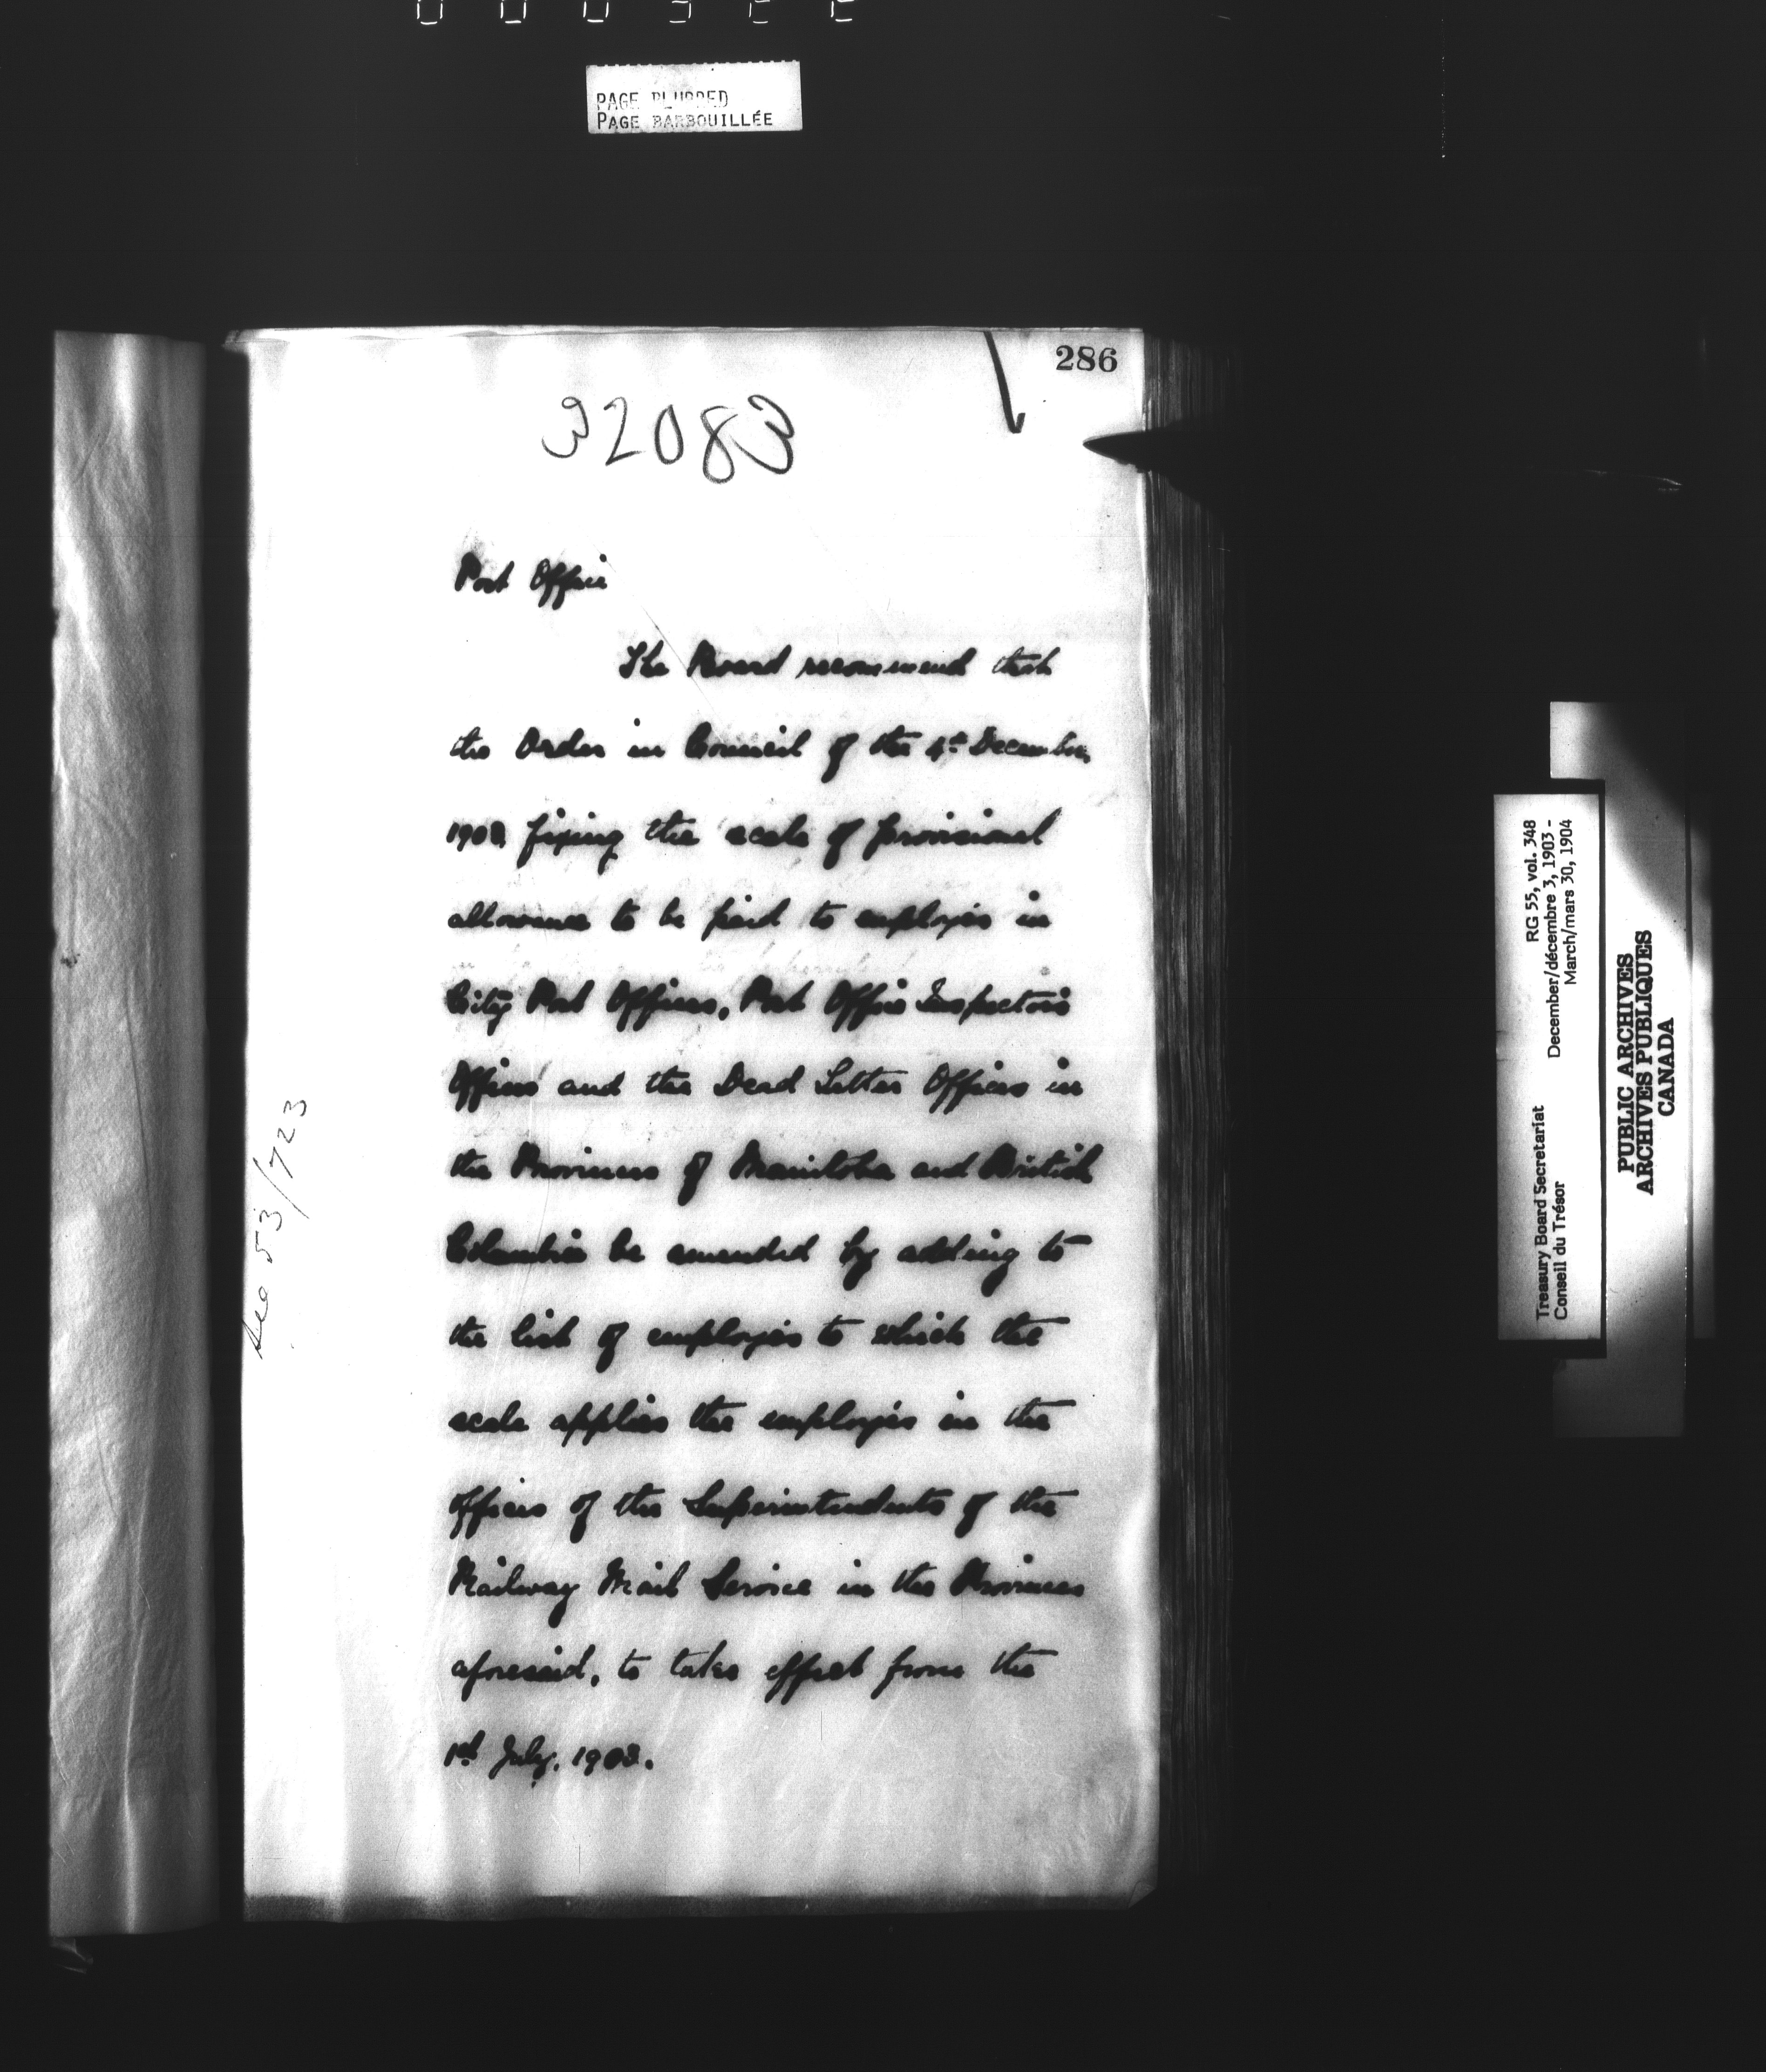 PAGE BLURRED
PAGE BARBOUILLÉE
286
32083
Post Office
The Board recommend that
the Order in Council of the 4th December,
fixing the scale of provisional
allowance to be paid to employés in
City Post Offices, Post Office Inspectors
Offices and the Dead Letter Offices in
the Provinces of Manitoba and British
Columbia be amended by adding to
the list of employés to which the
scale applies the employés in the
offices of the Superintendents of the
Railway Mail Service in the Provinces
aforesaid, to take effect from the
1st July,
See 53/723
Treasury Board Secretariat RG 55, vol. 348
Conseil du Trésor December/décembre 3, 1903 -
March/mars 30, 1904
PUBLIC ARCHIVES
ARCHIVES PUBLIQUES
CANADA